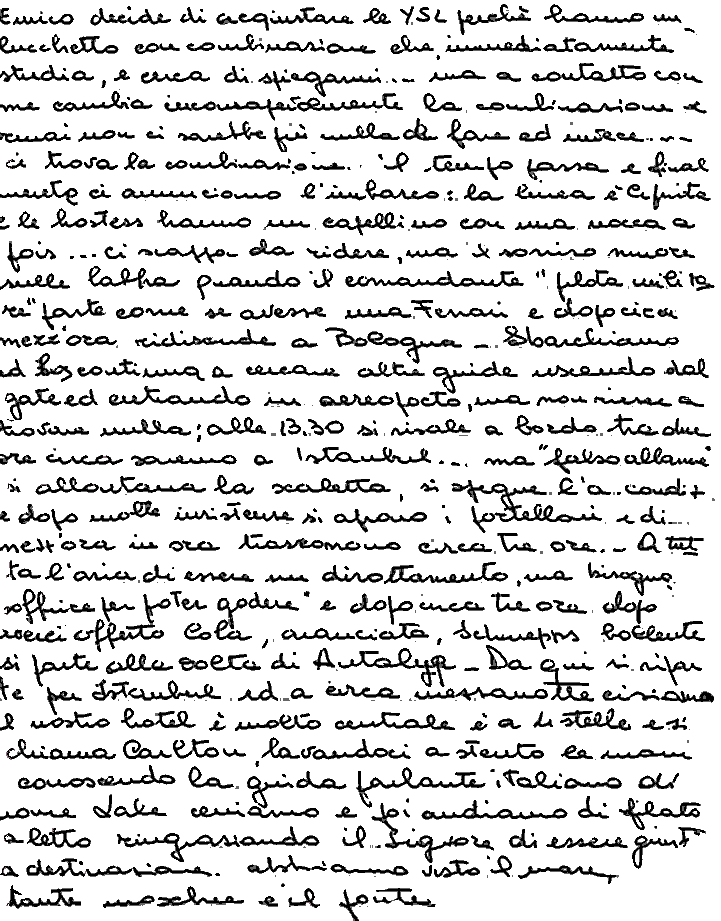 Enrico decide di acquistare le YSL perchè hanno un
lucchetto con combinazione che, immediatamente
studia, e cerca di spiegarmi... ma a contatto con
me cambia inconsapevolmente la combinazione e
ormai non ci sarebbe più nulla da fare ed invece....
ci trova la combinazione. il tempo passa e final
mente ci annunciano l'imbarco: la linea è Cipriota
e le hostess hanno un capellino con una
fois... ci scappa da ridere, ma il sorriso muore
sulle labbra quando il comandante "pilota milita
re" parte come se avesse una Ferrari e dopo circa
mezz'ora ridiscende a Bologna - Sbarchiamo
ed continua a cercare altre guide uscendo dal
gate ed entrando in aereoporto, ma non riesce a
trovare nulla; alle 13.30 si risale a bordo tra due
ore circa saremo a Istanbul... ma "falso allarme"
si allontana la scaletta, si spegne l'a condit
e dopo molte insistenze si aprono i portelloni e di
mezz'ora in ora trascorrono circa tre ore.. A tut
ta l'aria di essere un dirottamento, ma bisogna
soffrire per poter godere" e dopo circa tre ore dopo
averci offerto Cola, aranciata, Schwepps bollente
si parte alla volta di Antalya - Da qui si ripar
te per Istambul ed a circa mezzanotte ci siamo
il nostro hotel è molto centrale è a stelle e si
chiama Carlton, lavandoci a stento le mani
conoscendo la guida parlante italiano di
nome ceniamo e poi andiamo di filato
a letto ringraziando il Signore di essere giunti
a destinazione. abbiamo visto il mare,
tante moschee e il ponte